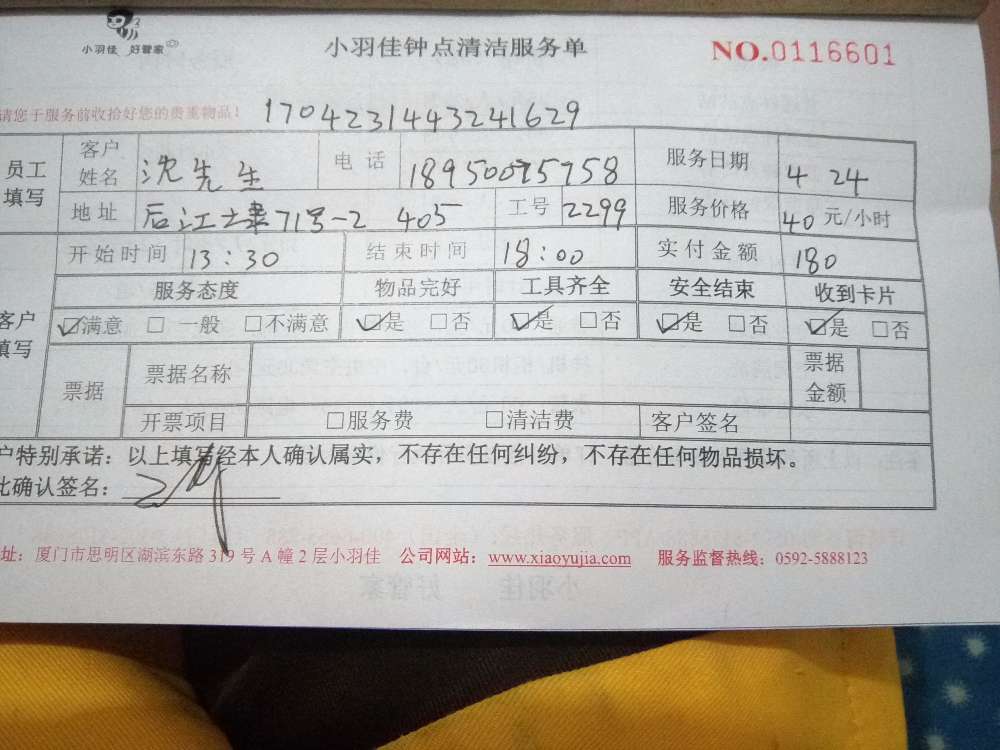 小羽佳 好管家
小羽佳钟点清洁服务单
NO.0116601
请您于服务前收拾好您的贵重物品! 1704231443241629
员工填写 客户姓名 沈先生 电话 服务日期 4 24
地址 后江埭71号-2 405 工号 2299 服务价格 40元/小时
开始时间 13:30 结束时间 18:00 实付金额 180
服务态度 物品完好 工具齐全 安全结束 收到卡片
客户填写 ☑满意 □一般 □不满意 ☑是 □否 ☑是 □否 ☑是 □否 ☑是 □否
票据 票据名称 票据金额
开票项目 □服务费 □清洁费 客户签名
户特别承诺:以上填写经本人确认属实,不存在任何纠纷,不存在任何物品损坏。
此确认签名:
址:厦门市思明区湖滨东路319号A幢2层小羽佳 公司网站:www.xiaoyujia.com 服务监督热线:0592-5888123